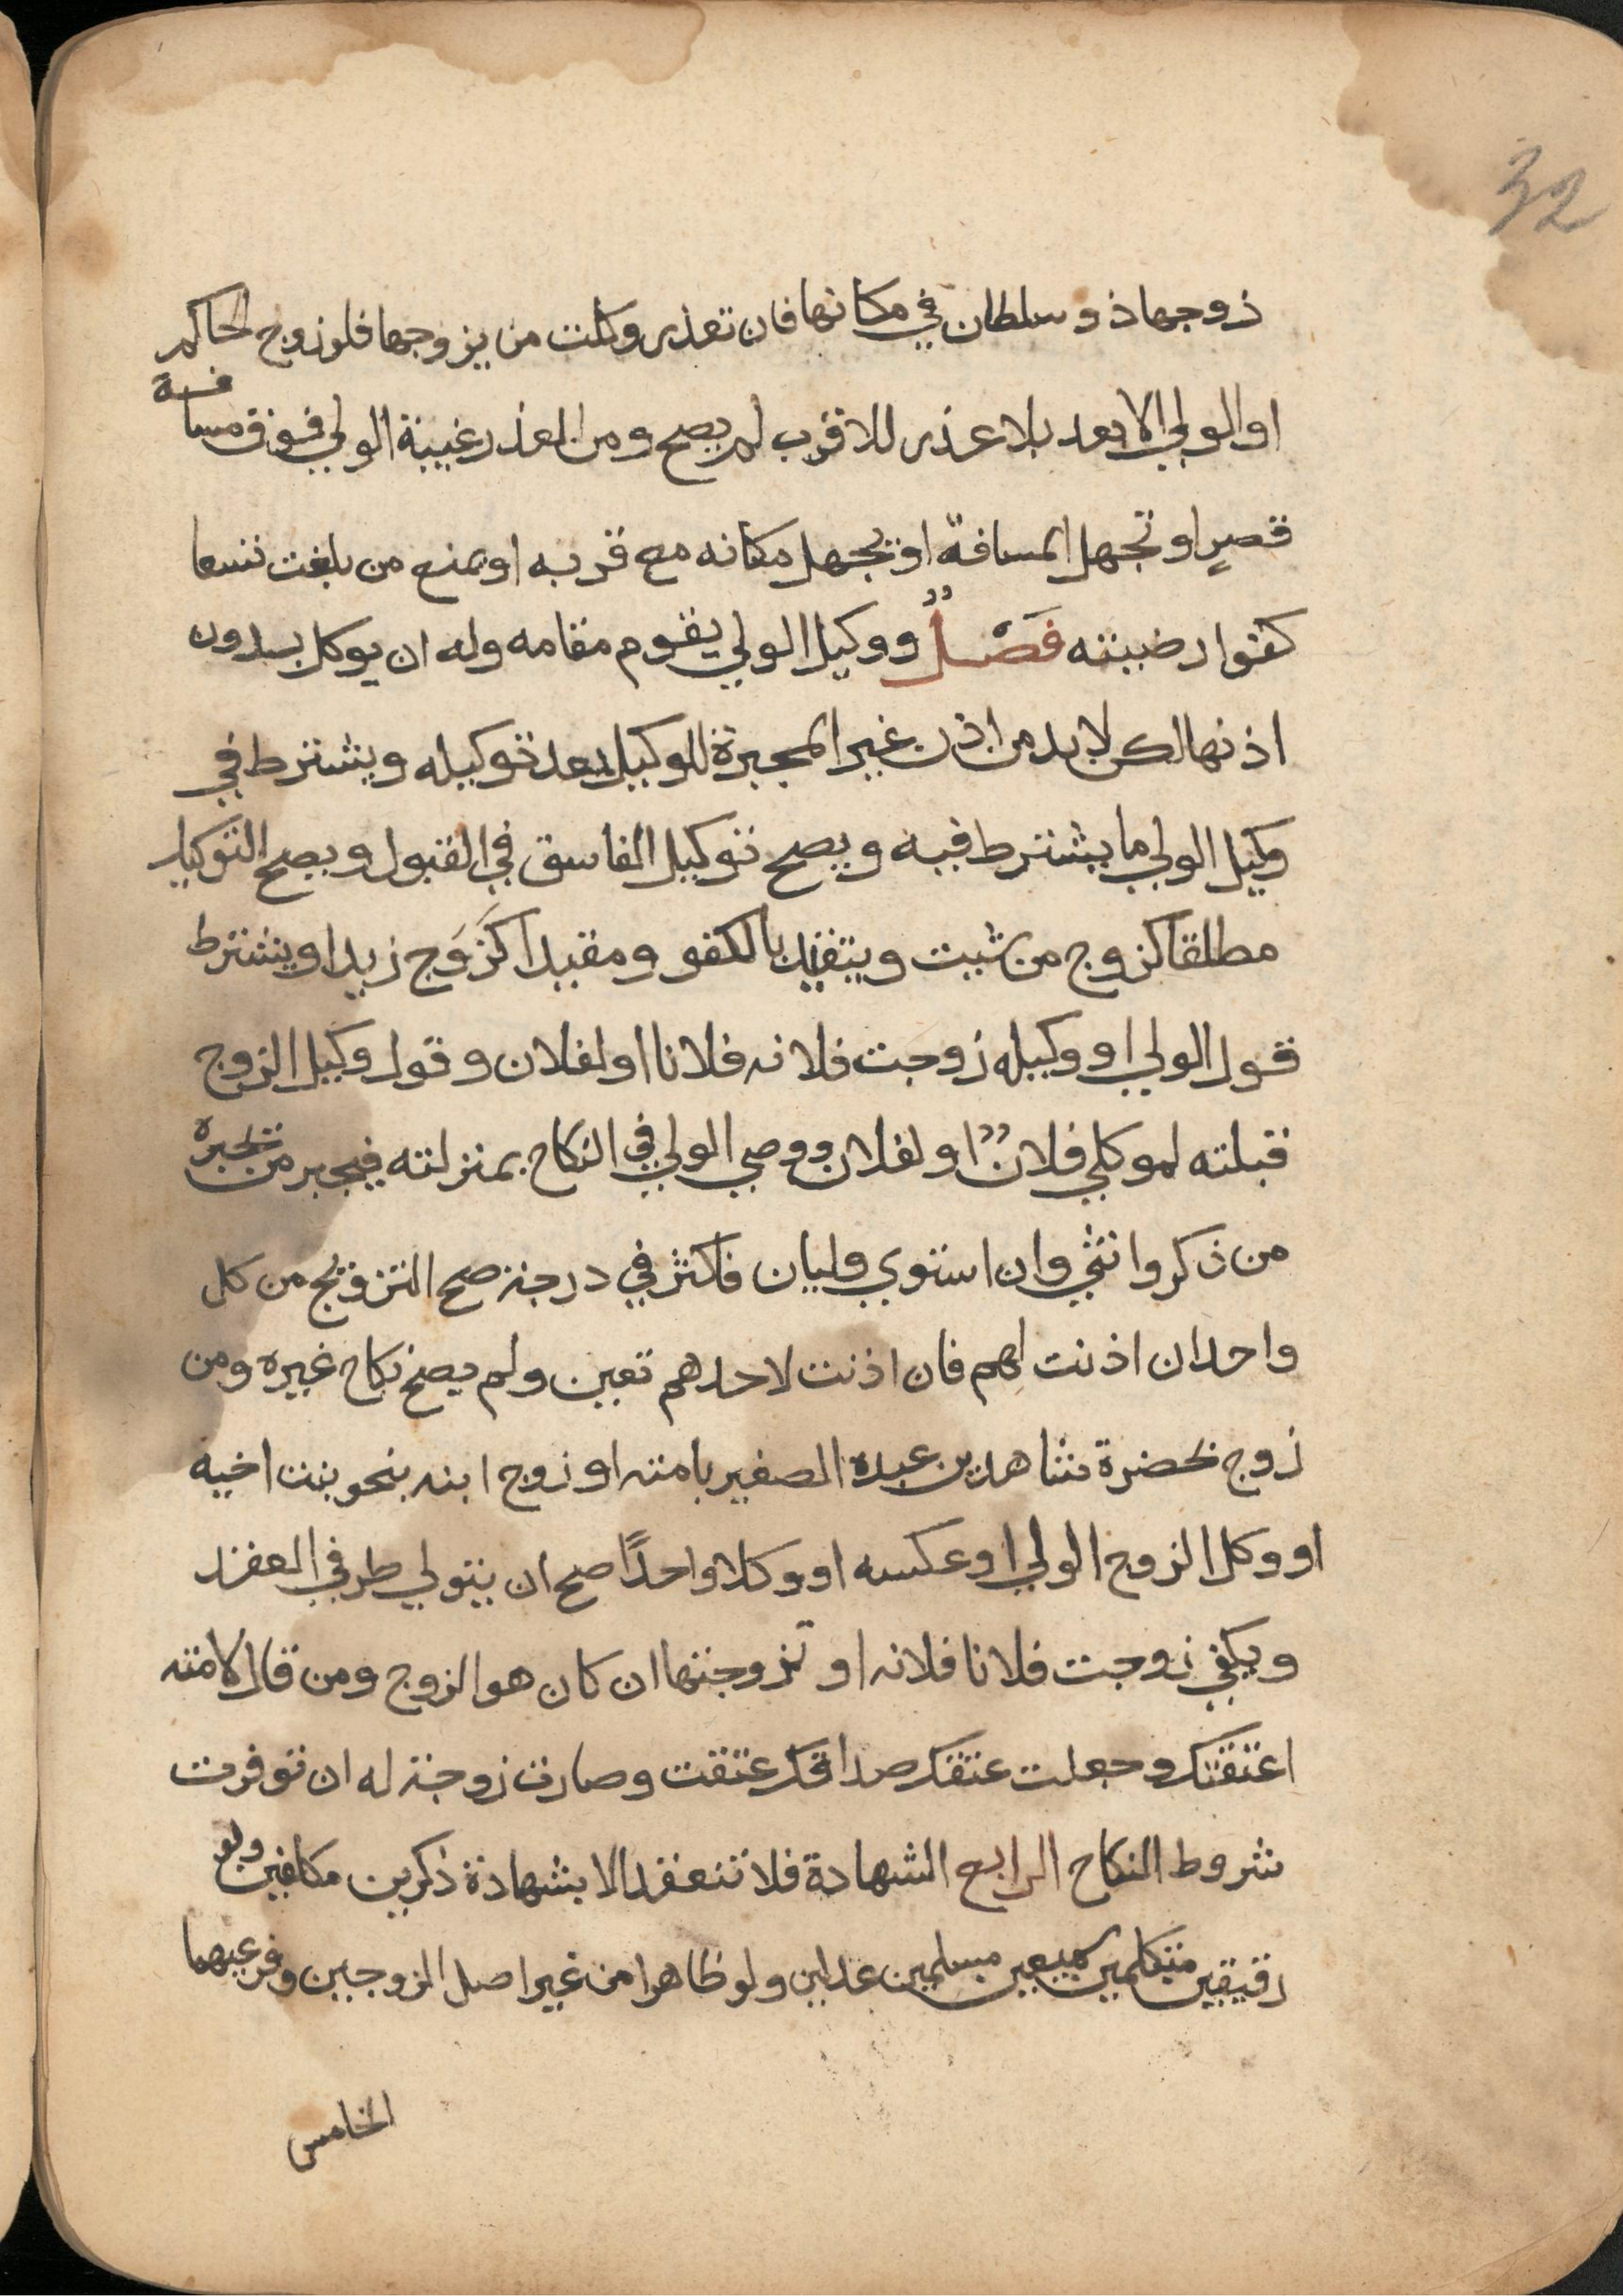 32
زوجها ذو سلطان في مكانها فان تعذر وكلت من يزوجها فلو زوج الحاكم
او الولي الابعد بلا عذر للاقرب لم يصح ومن العذر غيبة الولي فوق مسافة
قصرٍ او تجهل المسافة او يجهل مكانه مع قربه او يمنع من بلغت تسعا
كفوا رضيته فَصْلٌ ووكيل الولي يقوم مقامه وله ان يوكل بدون
اذنها لكن لا بد من اذن غير المجبرة للوكيل بعد توكيله ويشترط في
وكيل الولي ما يشترط فيه ويصح توكيل الفاسق في القبول ويصح التوكيل
مطلقا كزوج من شيت ويتقيد بالكفو ومقيدا كَزَوَج زيدا ويشترط
قول الولي او وكيله زوجت فلانه فلانا او لفلان وقول وكيل الزوج
قبلته لموكلي فلانٌ او لفلان ووصي الولي في النكاح بمنزلته فيجبر من تجبره
من ذكر وانثي وان استوي وليان فاكثر في درجة صح التزويج من كل
واحد ان اذنت لهم فان اذنت لاحدهم تعين ولم يصح نكاح غيره ومن
زوج بحضرة شاهدين عبده الصغير بامته او زوج ابنه بنحو بنت اخيه
او وكل الزوج الولي او عكسه او وكلا واحدًا صح ان يتولي طرفي العقد
ويكفي زوجت فلانا فلانه او تزوجتها ان كان هو الزوج ومن قال لامته
اعتقتك وجعلت عتقك صداقك عتقت وصارت زوجة له ان توفرت
شروط النكاح الرابع الشهادة فلا تنعقد الا بشهادة ذكرين مكلفين ولو
رقيقين متكلمين سميعين مسلمين عدلين ولو ظاهرا من غير اصل الزوجين وفرعيهما
الخامس